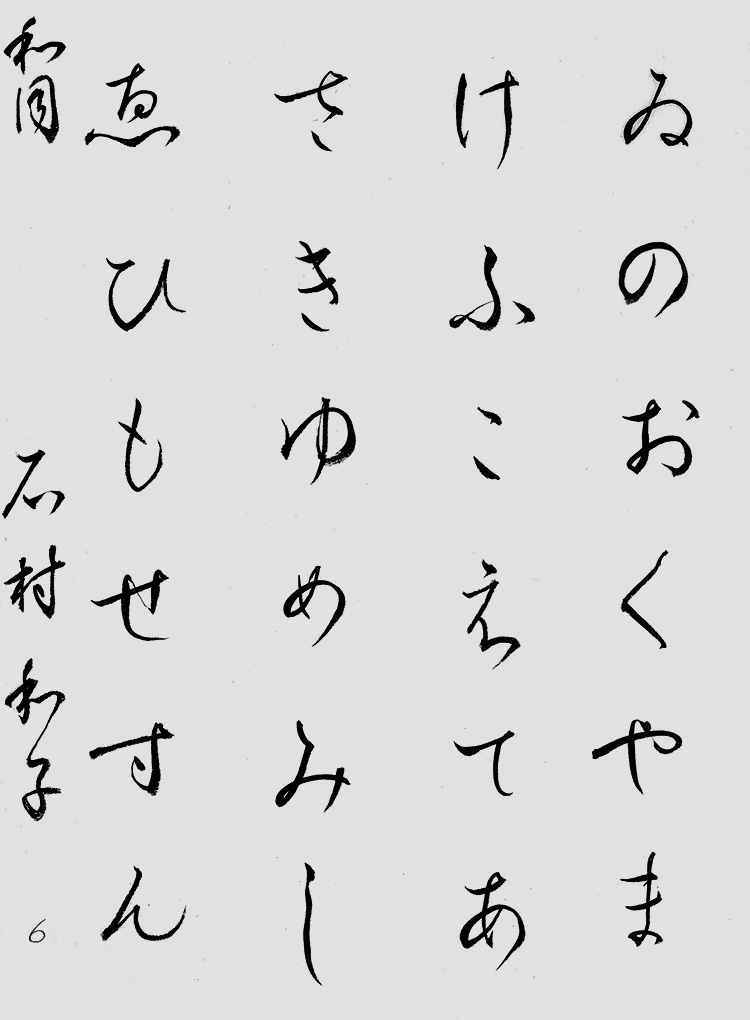 ゐのおくやま
けふこえてあ
さきゆめみし
恵ひもせすん
和同
石村和子
6